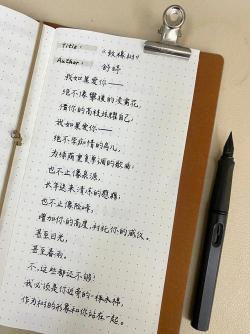 Title:
《致橡树》
Author:
舒婷
我如果爱你——
绝不像攀援的凌霄花,
借你的高枝炫耀自己;
我如果爱你——
绝不学痴情的鸟儿,
为绿荫重复单调的歌曲;
也不止像泉源,
长年送来清凉的慰藉;
也不止像险峰,
增加你的高度,衬托你的威仪。
甚至日光,
甚至春雨。
不,这些都还不够!
我必须是你近旁的一株木棉,
作为树的形象和你站在一起。